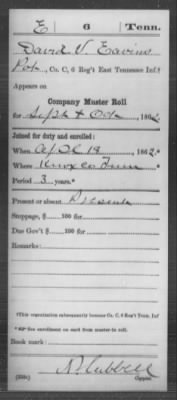 E 6 Tenn.
David V. Eavins
Pvt., Co. C, 6 Reg't East Tennessee Inf.†
Appears on
Company Muster Roll
for Sept & Oct, 1862.
Joined for duty and enrolled:
When Apl 18, 1862.*
Where Knox Co Tenn
Period 3 years.*
Present or absent Present
Stoppage, $ 100 for
Due Gov't $ 100 for
Remarks:
†This organization subsequently became Co. C, 6 Reg't Tenn. Inf
* See enrollment on card from muster-in roll.
Book mark:
(358c) Copyist.